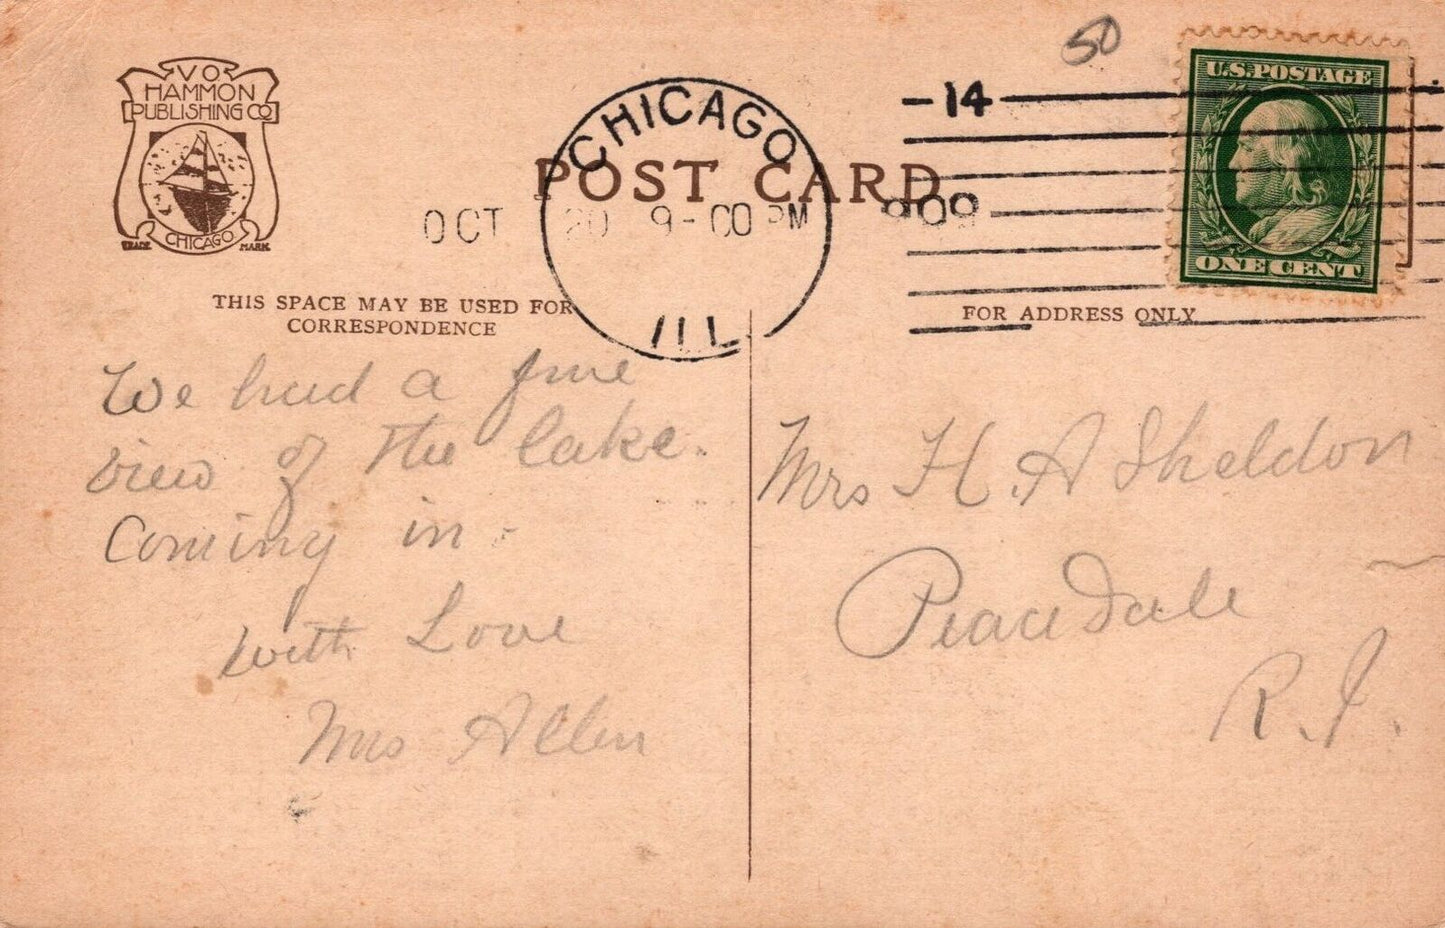 V O
HAMMON
PUBLISHING CO
CHICAGO
TRADE MARK
50
CHICAGO
ILL
OCT 20 9-00 PM 1909
-14
U.S. POSTAGE
ONE CENT
POST CARD
THIS SPACE MAY BE USED FOR
CORRESPONDENCE
FOR ADDRESS ONLY
We had a fine
view of the lake.
Coming in.
With Love
Mrs Allen
Mrs H. A Sheldon
Peacedale
R.I.